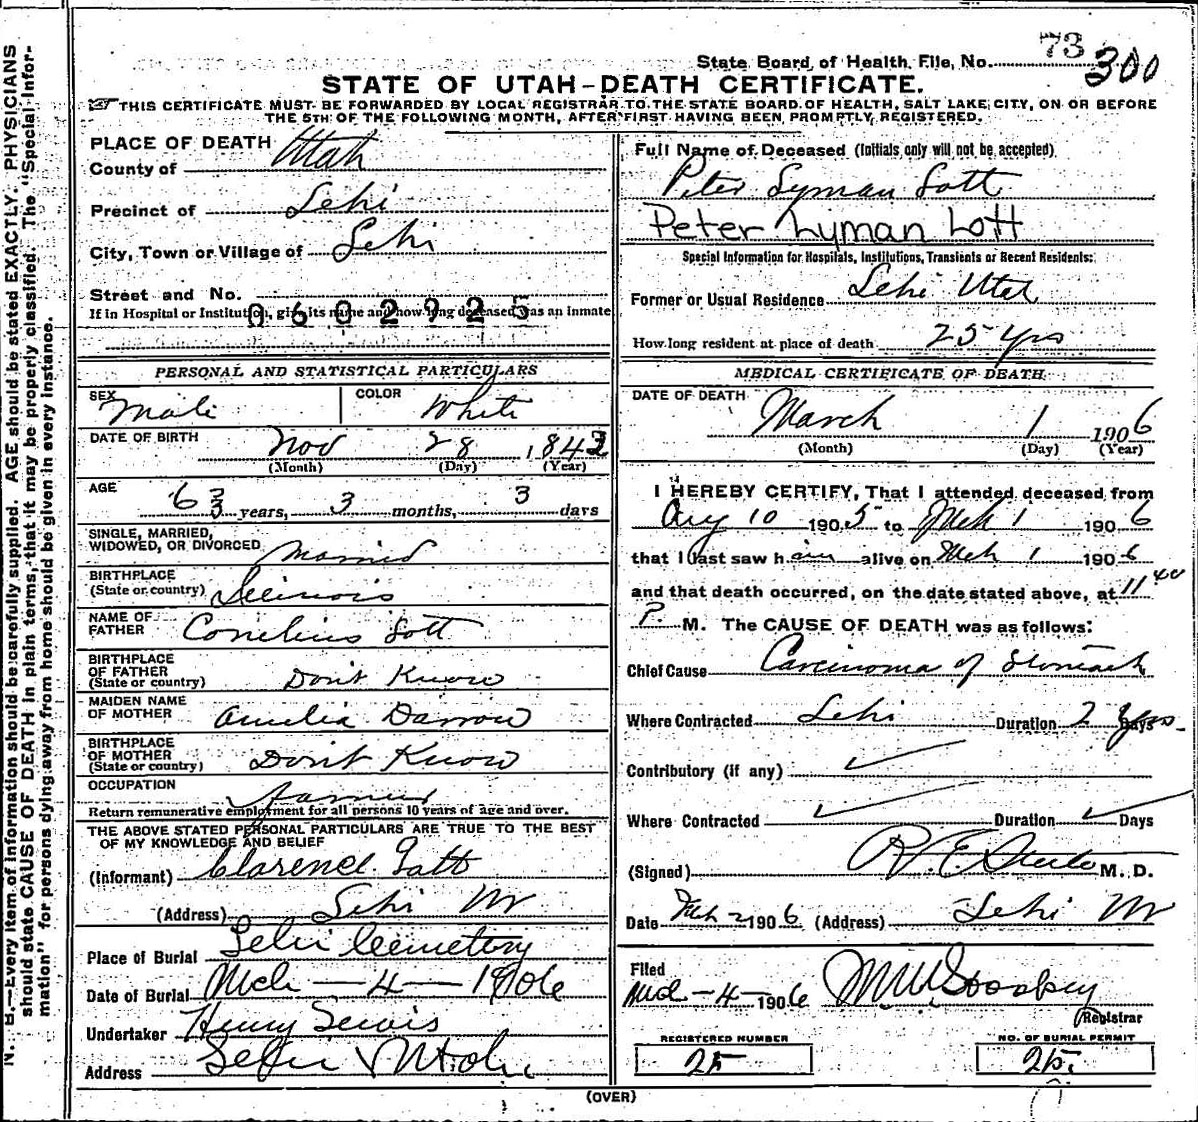 73
State Board of Health File, No. 300
STATE OF UTAH-DEATH CERTIFICATE.
THIS CERTIFICATE MUST BE FORWARDED BY LOCAL REGISTRAR TO THE STATE BOARD OF HEALTH, SALT LAKE CITY, ON OR BEFORE
THE 5TH OF THE FOLLOWING MONTH, AFTER FIRST HAVING BEEN PROMPTLY REGISTERED.
PLACE OF DEATH
County of Utah
Precinct of Lehi
City, Town or Village of Lehi
Street and No.
0602925
If in Hospital or Institution, give its name and how long deceased was an inmate
PERSONAL AND STATISTICAL PARTICULARS
SEX Male COLOR White
DATE OF BIRTH Nov 28 1842
(Month) (Day) (Year)
AGE 63 years, 3 months, 3 days
SINGLE, MARRIED,
WIDOWED, OR DIVORCED Married
BIRTHPLACE
(State or country) Illinois
NAME OF
FATHER Cornelius Lott
BIRTHPLACE
OF FATHER
(State or country) Don't Know
MAIDEN NAME
OF MOTHER Amelia Darrow
BIRTHPLACE
OF MOTHER
(State or country) Don't Know
OCCUPATION
Farmer
Return remunerative employment for all persons 10 years of age and over.
THE ABOVE STATED PERSONAL PARTICULARS ARE TRUE TO THE BEST
OF MY KNOWLEDGE AND BELIEF
(Informant) Clarence Lott
(Address) Lehi Ut
Place of Burial Lehi Cemetery
Date of Burial Mch - 4 - 1906
Undertaker Henry Lewis
Address Lehi Utah
Full Name of Deceased (Initials only will not be accepted)
Peter Lyman Lott
Peter Lyman Lott
Special Information for Hospitals, Institutions, Transients or Recent Residents:
Former or Usual Residence Lehi Utah
How long resident at place of death 25 yrs
MEDICAL CERTIFICATE OF DEATH
DATE OF DEATH
March 1 1906
(Month) (Day) (Year)
I HEREBY CERTIFY, That I attended deceased from
Aug 10 1905 to Mch 1 1906
that I last saw him alive on Mch 1 1906
and that death occurred, on the date stated above, at 11 40
P. M. The CAUSE OF DEATH was as follows:
Chief Cause Carcinoma of Stomach
Where Contracted Lehi Duration 2 yrs Days
Contributory (if any)
Where Contracted Duration Days
(Signed) R. E. Steele M. D.
Date Mch 2 1906 (Address) Lehi Ut
Filed
Mch - 4 - 1906
Registrar
REGISTERED NUMBER
25
NO. OF BURIAL PERMIT
25
(OVER)
N. B.—Every item of information should be carefully supplied. AGE should be stated EXACTLY. PHYSICIANS
should state CAUSE OF DEATH in plain terms, that it may be properly classified. The "Special Infor-
mation" for persons dying away from home should be given in every instance.